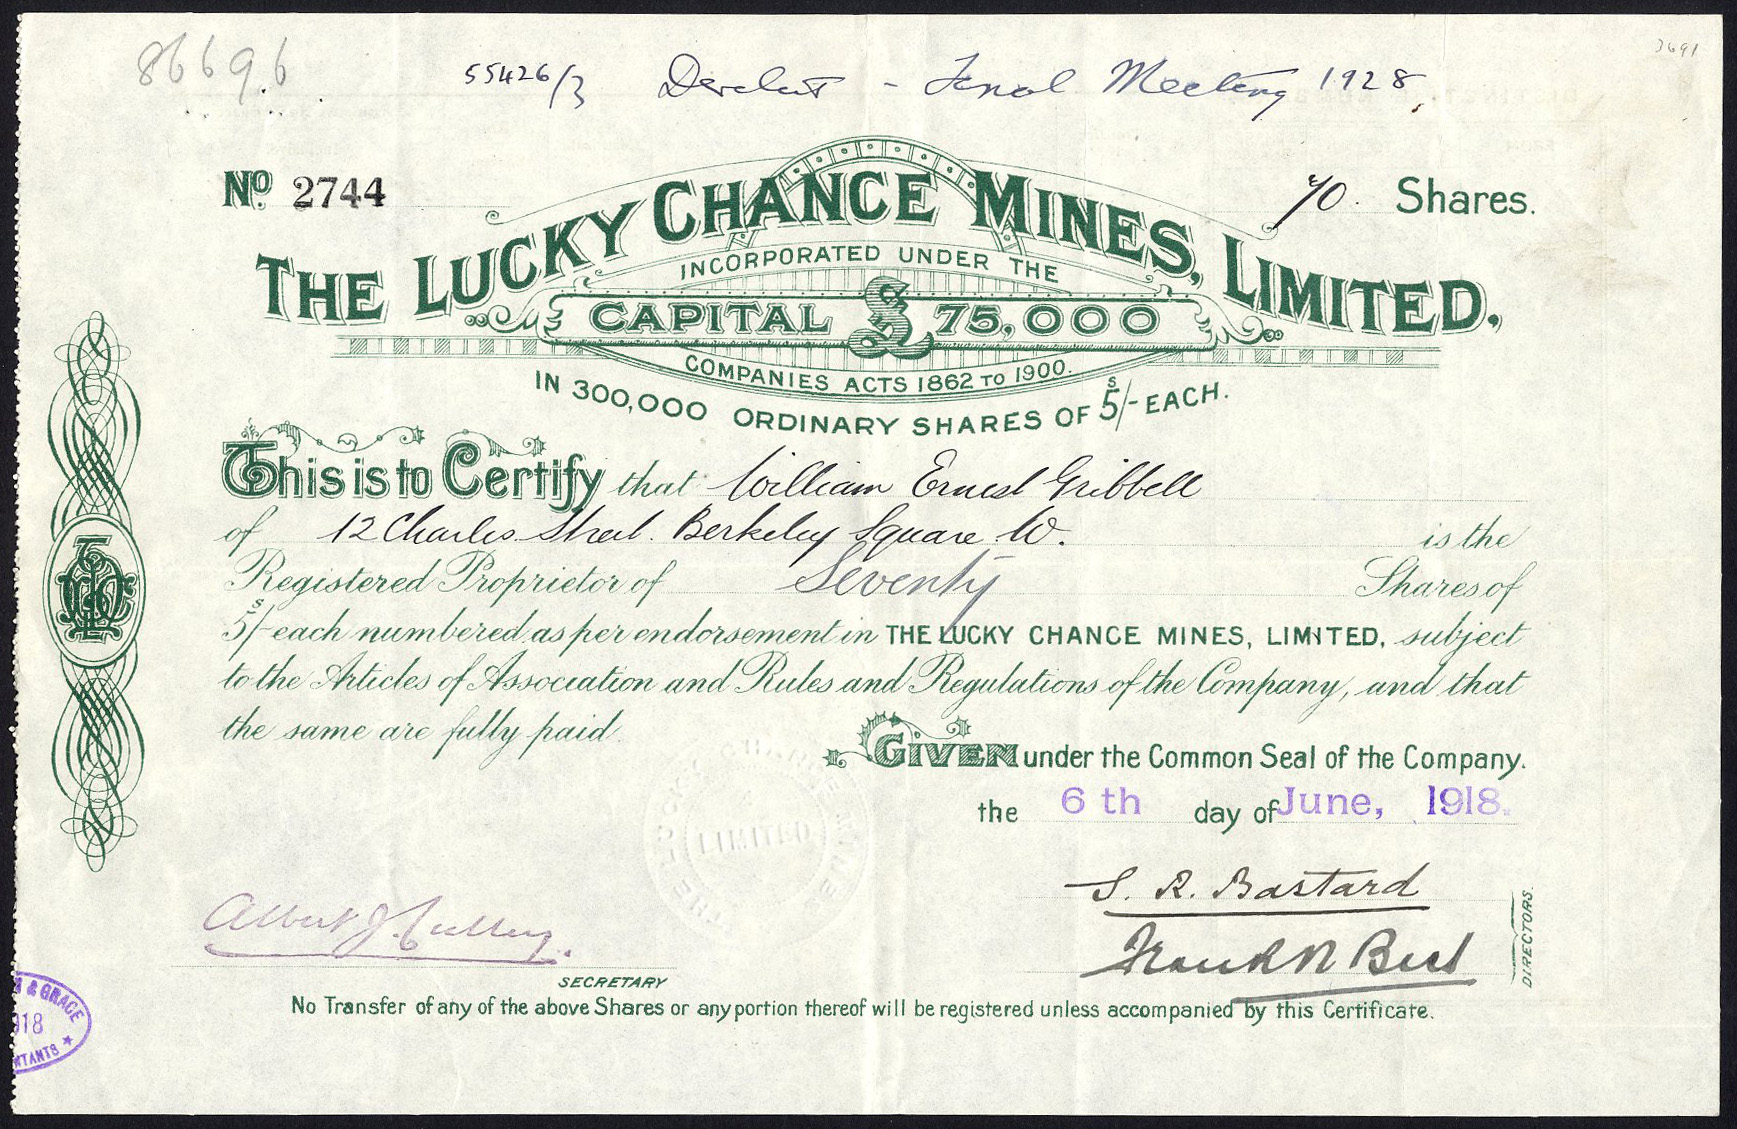 86696
55426/3 - Final Meeting 1928
3691
No. 2744
70. Shares.
THE LUCKY CHANCE MINES, LIMITED.
INCORPORATED UNDER THE
CAPITAL £ 75,000
COMPANIES ACTS 1862 TO 1900.
IN 300,000 ORDINARY SHARES OF 5s/- EACH.
This is to Certify that William Ernest Gribbell
of 12 Charles Street. Berkeley Square W. is the
Registered Proprietor of Seventy Shares of
5s/- each numbered as per endorsement in THE LUCKY CHANCE MINES, LIMITED, subject
to the Articles of Association and Rules and Regulations of the Company, and that
the same are fully paid.
GIVEN under the Common Seal of the Company.
the 6th day of June, 1918.
THE LUCKY CHANCE MINES
LIMITED
S. R. Bastard
Albert J.
Frank N Best
DIRECTORS.
SECRETARY
& GRACE
918
NTANTS ★
No Transfer of any of the above Shares or any portion thereof will be registered unless accompanied by this Certificate.